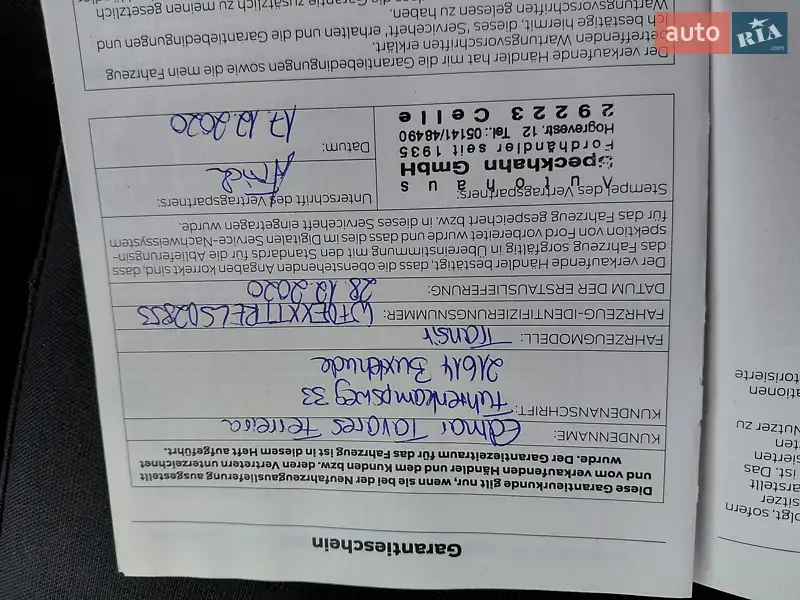 Garantieschein
Diese Garantieurkunde gilt nur, wenn sie bei der Neufahrzeugauslieferung ausgestellt
und vom verkaufenden Händler und dem Kunden bzw. deren Vertretern unterzeichnet
wurde. Der Garantiezeitraum für das Fahrzeug ist in diesem Heft aufgeführt.
KUNDENNAME: Edmar Tavares Ferreira
KUNDENANSCHRIFT: Fuhrenkampsweg 33
21614 Buxtehude
FAHRZEUGMODELL: Transit
FAHRZEUG-IDENTIFIZIERUNGSNUMMER: WF0EXXTTRELS02853
DATUM DER ERSTAUSLIEFERUNG: 28.12.2020
Der verkaufende Händler bestätigt, dass die obenstehenden Angaben korrekt sind, dass
das Fahrzeug sorgfältig in Übereinstimmung mit den Standards für die Ablieferungsin-
spektion von Ford vorbereitet wurde und dass dies im Digitalen Service-Nachweissystem
für das Fahrzeug gespeichert bzw. in dieses Serviceheft eingetragen wurde.
Stempel des Vertragspartners:
Autohaus
Speckhahn GmbH
Fordhändler seit 1935
Hogrevestr. 12, Tel.: 05141/48490
29223 Celle
Unterschrift des Vertragspartners:
Datum: 17.12.2020
Der verkaufende Händler hat mir die Garantiebedingungen sowie die mein Fahrzeug
betreffenden Wartungsvorschriften erklärt.
Ich bestätige hiermit, dieses "Serviceheft" erhalten und die Garantiebedingungen und
Wartungsvorschriften gelesen zu haben.
die Garantie zusätzlich zu meinen gesetzlich
olgt, sofern
sitzer
arstellt
Das ist.
sierten
ten
Nutzer zu
ationen
torisierte
auto RIA
.com